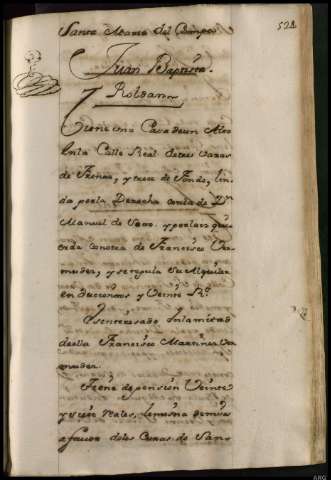 Santa Maria del Campo
524
Juan Baptista
Roldan
Tiene una Casa de un Alto
En la Calle Real de tres varas
de Frente, y trece de Fondo, lin
da por la Derecha con la de Dn
Manuel de Soto y por la izquier
da con otra de Francisco Ver
mudez, y se regula su Alquiler
en doscientos y veinte Rs
Es interesado En la mitad
de ella Francisco Martinez Ver
mudez.
Tiene de pension Veinte
y siete Reales, limosna de misas
a favor de los Curas de San
ARG